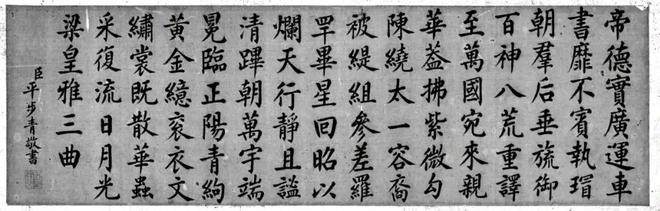 帝德實廣運車
書靡不賓執瑁
朝羣后垂旒御
百神八荒重譯
至萬國宛來親
華蓋拂紫微勾
陳繞太一容裔
被緹組參差羅
罕畢星回昭以
爛天行靜且謐
清蹕朝萬宇端
冕臨正陽青絇
黃金繶袞衣文
繡裳既散華蟲
采復流日月光
梁皇雅三曲
臣平步青敬書